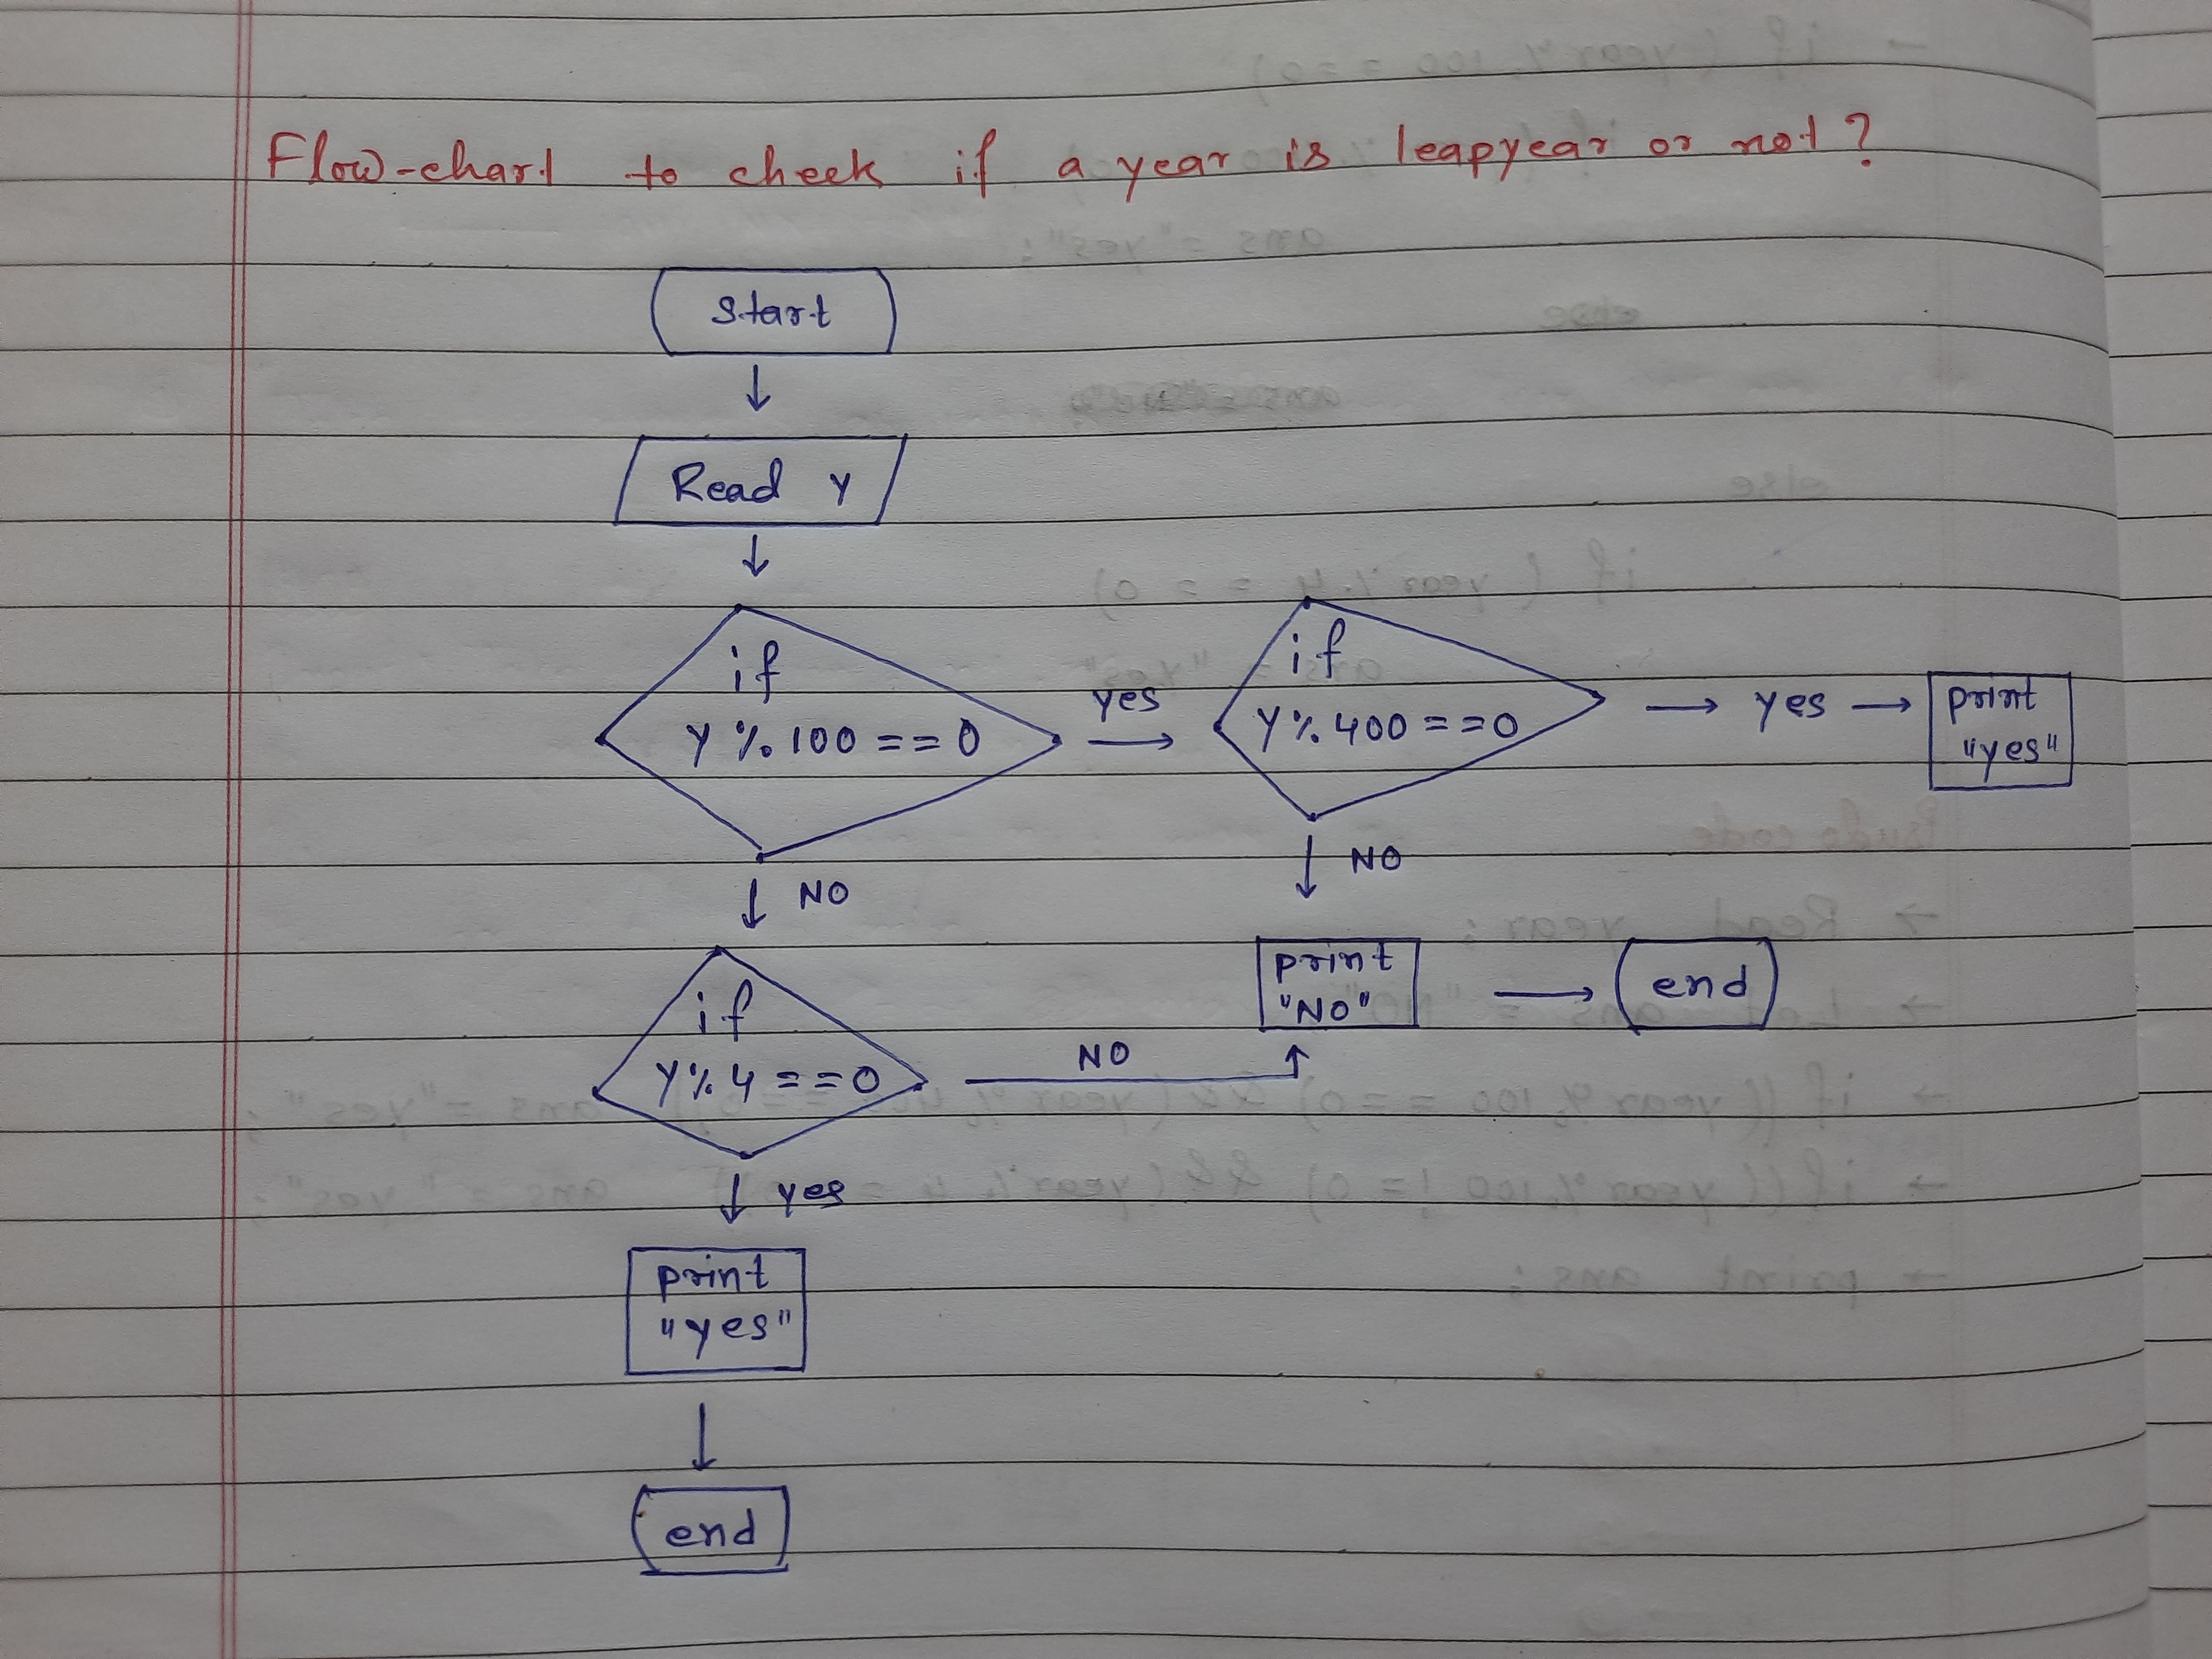 Flow-chart to check if a year is leapyear or not?
Start
Read Y
if
Y % 100 == 0
yes
if
Y % 400 == 0
yes
print
"yes"
NO
NO
if
Y % 4 == 0
NO
print
"NO"
end
yes
print
"yes"
end